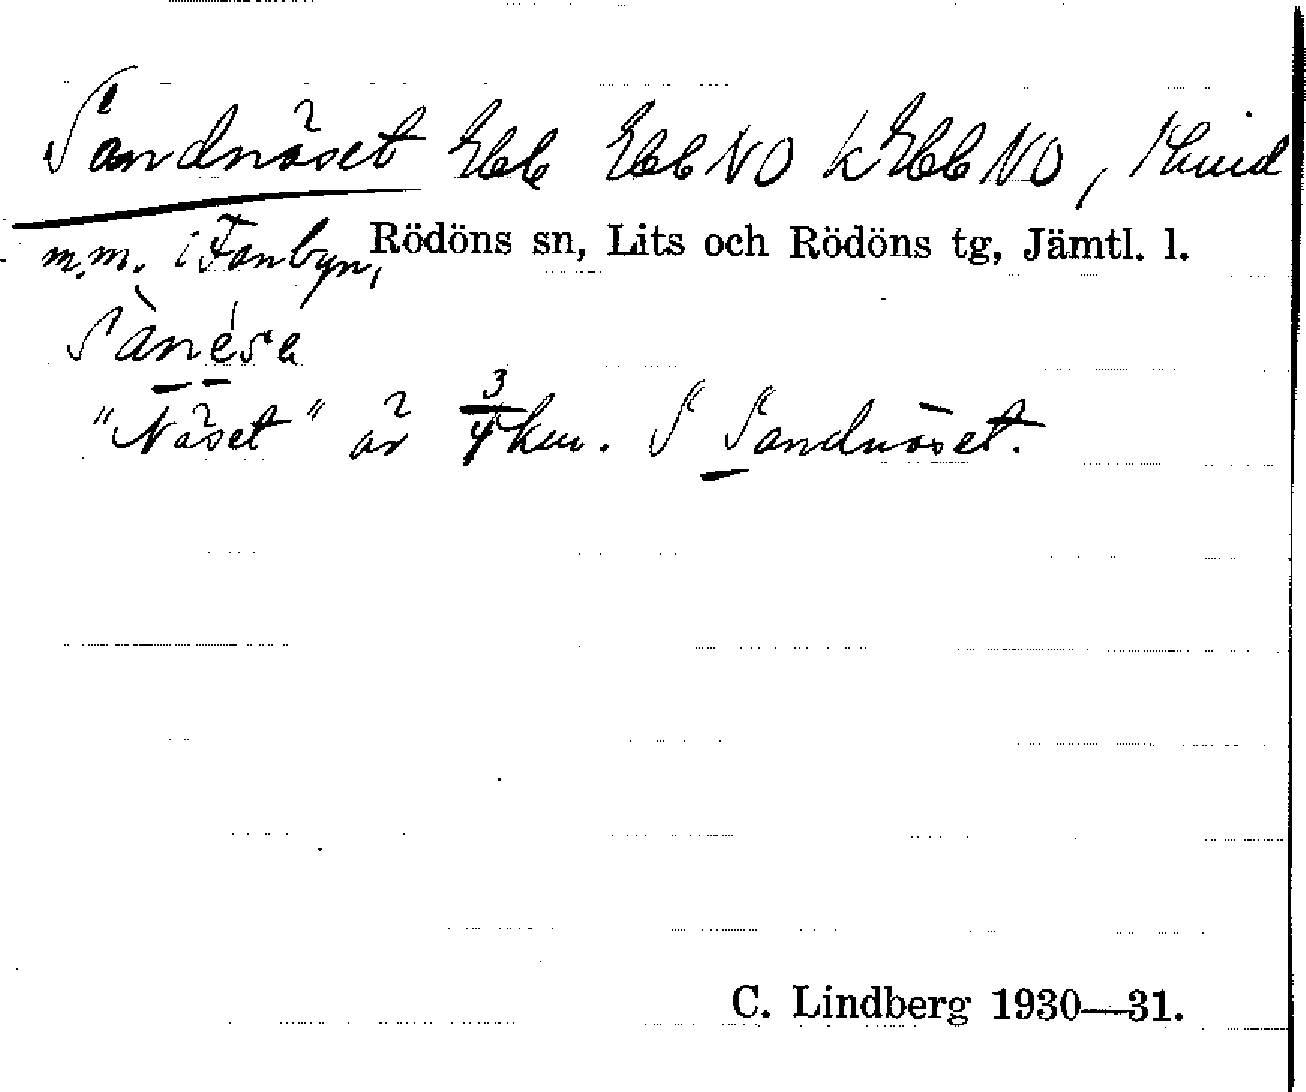 Sandnäset Ebb EbbNO kEbbNO, 1 hind
m.m. i Fanbyn, Rödöns sn, Lits och Rödöns tg, Jämtl. l.
Sànésa
"Näset" är 3/4 km. S Sandnäset.
C. Lindberg 1930—31.